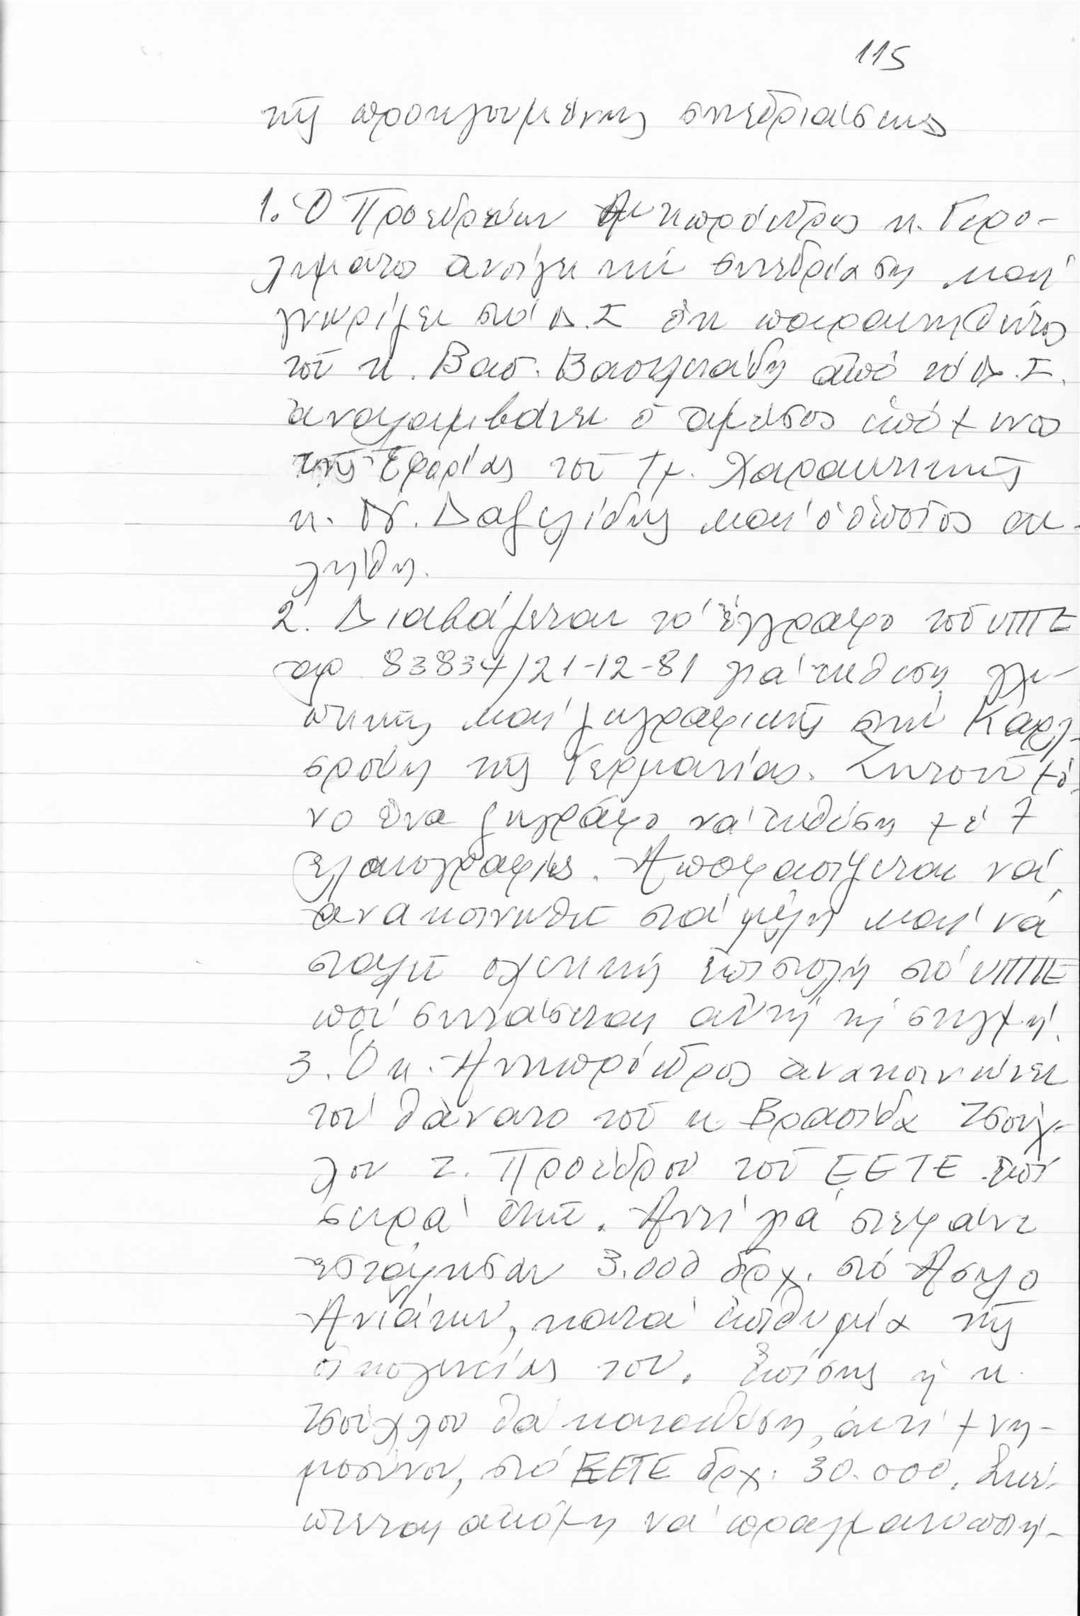 115
τῆς προηγουμένης συνεδριάσεως
1. Ὁ Προεδρεύων Ἀντιπρόεδρος κ. Γερο-
λυμᾶτο ἀνοίγει τήν συνεδρίαση καί
γνωρίζει στό Δ.Σ ὅτι παραιτηθέντος
τοῦ κ. Βασ. Βασιλειάδη ἀπό τό Δ.Σ.
ἀναλαμβάνει ὁ ἀμέσος ἑπόμενος
τῆς Ἐφορίας τοῦ Τμ. Χαρακτικῆς
κ. Δαβελίδης καί ὁ ὁποῖος ἐκ-
λήθη.
2. Διαβάζεται τό ἔγγραφο τοῦ ΥΠΠΕ
ἀρ 83834/21-12-81 γιά ἔκθεση γλυ-
πτικῆς καί ζωγραφικῆς στήν Καρλ-
σρούη τῆς Γερμανίας. Ζητοῦν μό-
νο ἕνα ζωγράφο νά ἐκθέση μέ 7
ἐλαιογραφίες. Ἀποφασίζεται νά
ἀνακοινωθῆ στά μέλη καί νά
σταλῆ σχετική ἐπιστολή στό ΥΠΠΕ
πού συντάσσεται αὐτή τή στιγμή.
3. Ὁ κ. Ἀντιπρόεδρος ἀνακοινώνει
τόν θάνατο τοῦ κ Βρασίδα Τσούχ-
λου τ. Προέδρου τοῦ ΕΕΤΕ ἐπί
σειρά ἐτῶν. Ἀντί γιά στεφάνι
ἐστάλησαν 3.000 δρχ. στό Ἄσυλο
Ἀνιάτων, κατά ἐπιθυμία τῆς
οἰκογενείας του. Ἐπίσης ἡ κ.
Τσούχλου θά καταθέση, ἀντί μνη-
μοσύνου, στό ΕΕΤΕ δρχ. 30.000. Σκέ-
πτεται ἀκόμη νά πραγματοποιή-